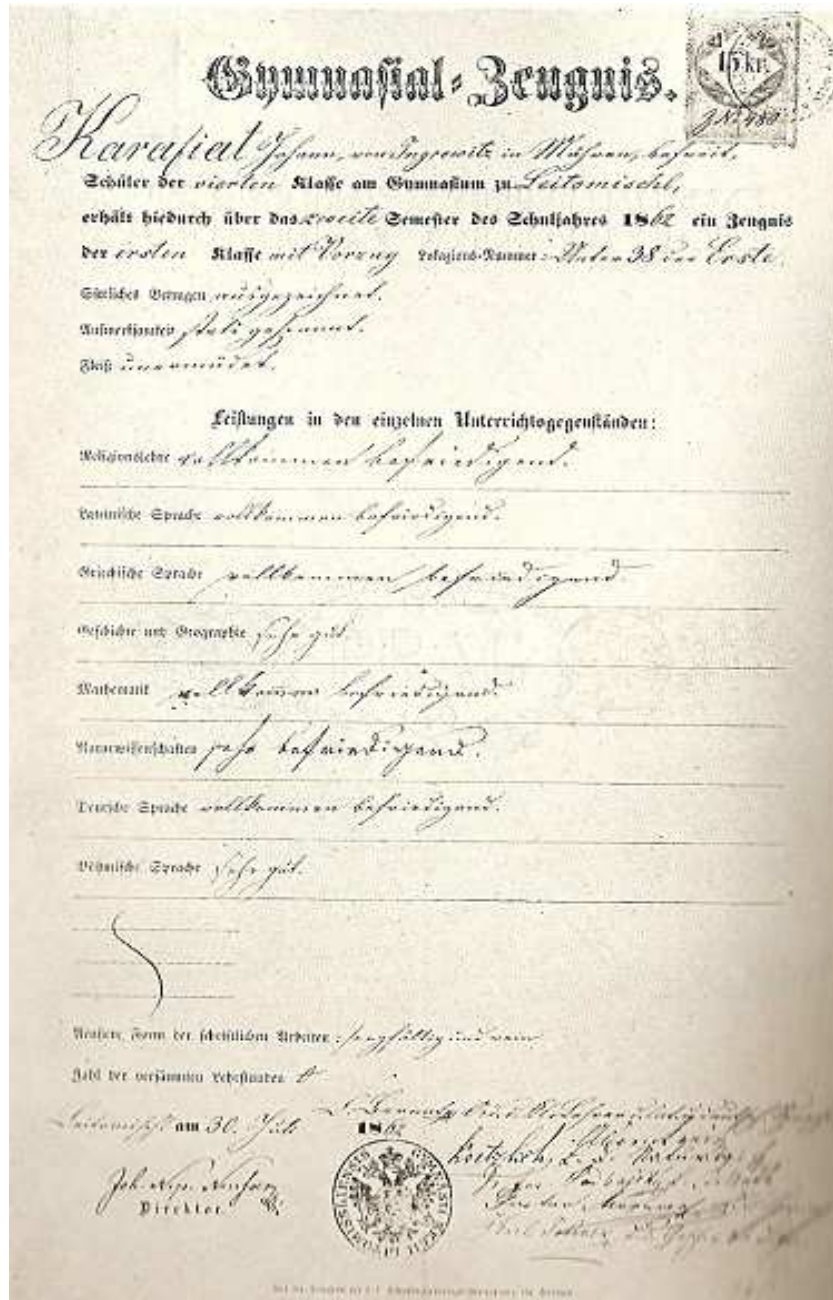 Gymnasial-Zeugnis.
15 kr.
Karafiat Johann, von Ingrowitz in Mähren, befreit,
Schüler der vierten Klasse am Gymnasium zu Leitomischl,
erhält hiedurch über das zweite Semester des Schuljahres 1862 ein Zeugnis
der ersten Klasse mit Vorzug Lokazions-Nummer: Unter 38 der Erste.
Sittliches Betragen ausgezeichnet.
Aufmerksamkeit stets gespannt.
Fleiß unermüdet.
Leistungen in den einzelnen Unterrichtsgegenständen:
Religionslehre vollkommen befriedigend.
Lateinische Sprache vollkommen befriedigend.
Griechische Sprache vollkommen befriedigend
Geschichte und Geographie sehr gut.
Mathematik vollkommen befriedigend.
Naturwissenschaften sehr befriedigend.
Deutsche Sprache vollkommen befriedigend.
Böhmische Sprache sehr gut.
Aeußere Form der schriftlichen Arbeiten: sorgfältig und rein
Zahl der versäumten Lehrstunden 0
Leitomischl am 30. Juli 1862
Joh. Nep.
Direktor